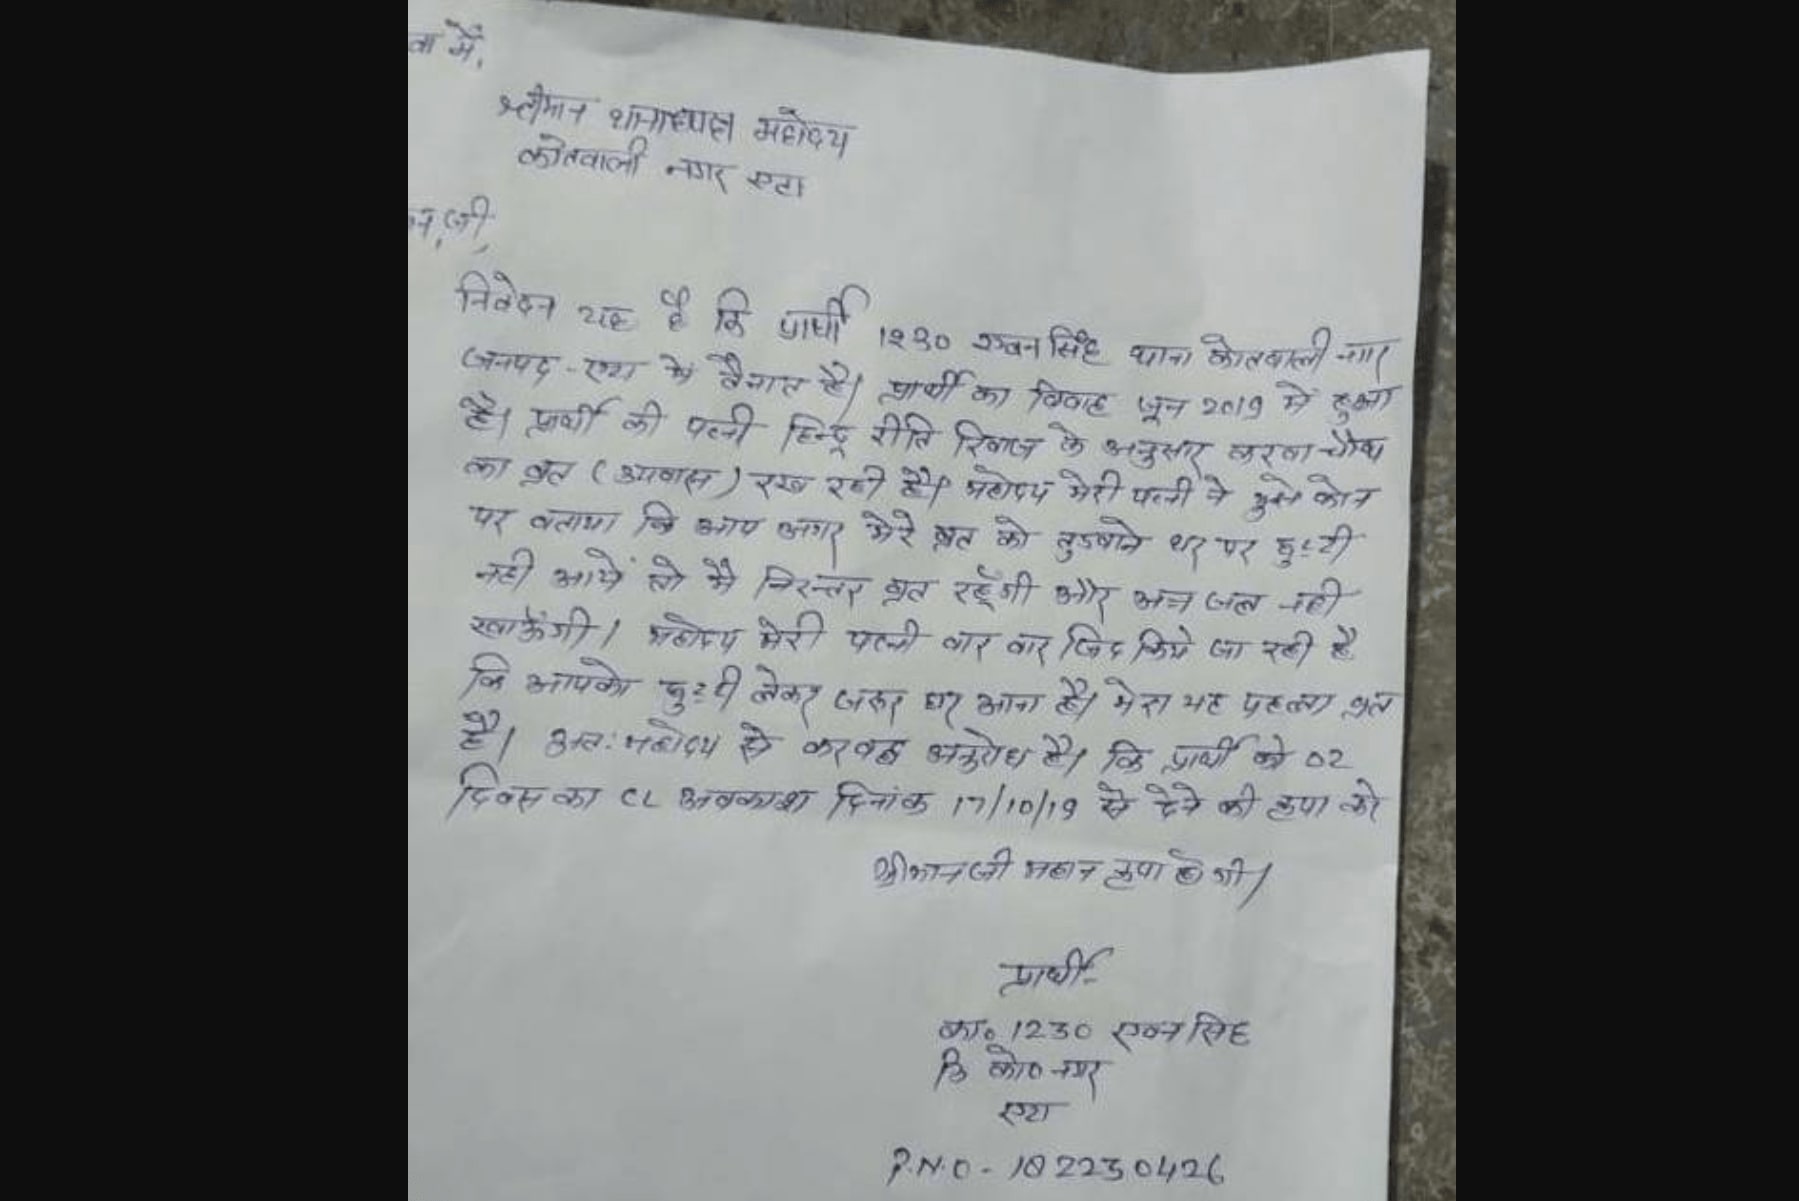 वा में,
श्रीमान थानाध्यक्ष महोदय
कोतवाली नगर एटा
न जी,
निवेदन यह है कि प्रार्थी 1230 सिंह थाना कोतवाली नगर
जनपद - एटा में तैनात है। प्रार्थी का विवाह जून 2019 में हुआ
है। प्रार्थी की पत्नी हिन्दू रीति रिवाज के अनुसार करवा चौथ
का व्रत (उपवास) रख रही है। महोदय मेरी पत्नी ने मुझे फोन
पर बताया कि आप अगर मेरे व्रत को तुडवाने घर पर छुट्टी
नही आये तो मै निरन्तर व्रत रहूँगी और अन्न जल नही
खाऊँगी। महोदय मेरी पत्नी बार बार जिद किये जा रही है
कि आपको छुट्टी लेकर जरूर घर आना है। मेरा यह पहला व्रत
है। अतः महोदय से करबद्ध अनुरोध है। कि प्रार्थी को 02
दिवस का CL अवकाश दिनांक 17/10/19 से देने की कृपा करे
श्रीमान जी महान कृपा होगी।
प्रार्थी-
का० 1230 सिंह
को० नगर
एटा
P.N.O - 182230426